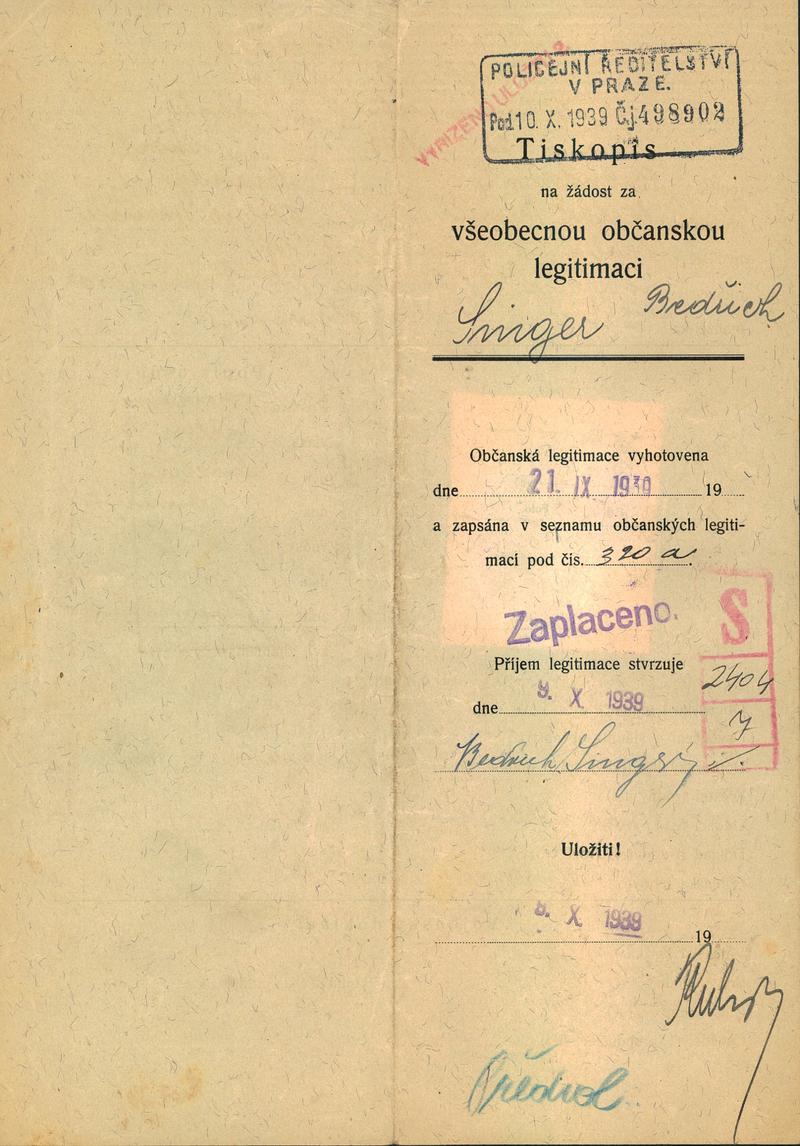 POLICEJNÍ ŘEDITELSTVÍ
V PRAZE.
Pod 10. X. 1939 Čj. 498902
VYŘÍZENO ULOŽ
Tiskopis
na žádost za
všeobecnou občanskou
legitimaci
Singer Bedřich
Občanská legitimace vyhotovena
dne 21. IX 1939 19
a zapsána v seznamu občanských legiti-
mací pod čís. 320 a.
Zaplaceno.
S
Příjem legitimace stvrzuje
2404
dne 9. X 1939
7
Bedřich Singer
Uložiti!
9. X 1939 19